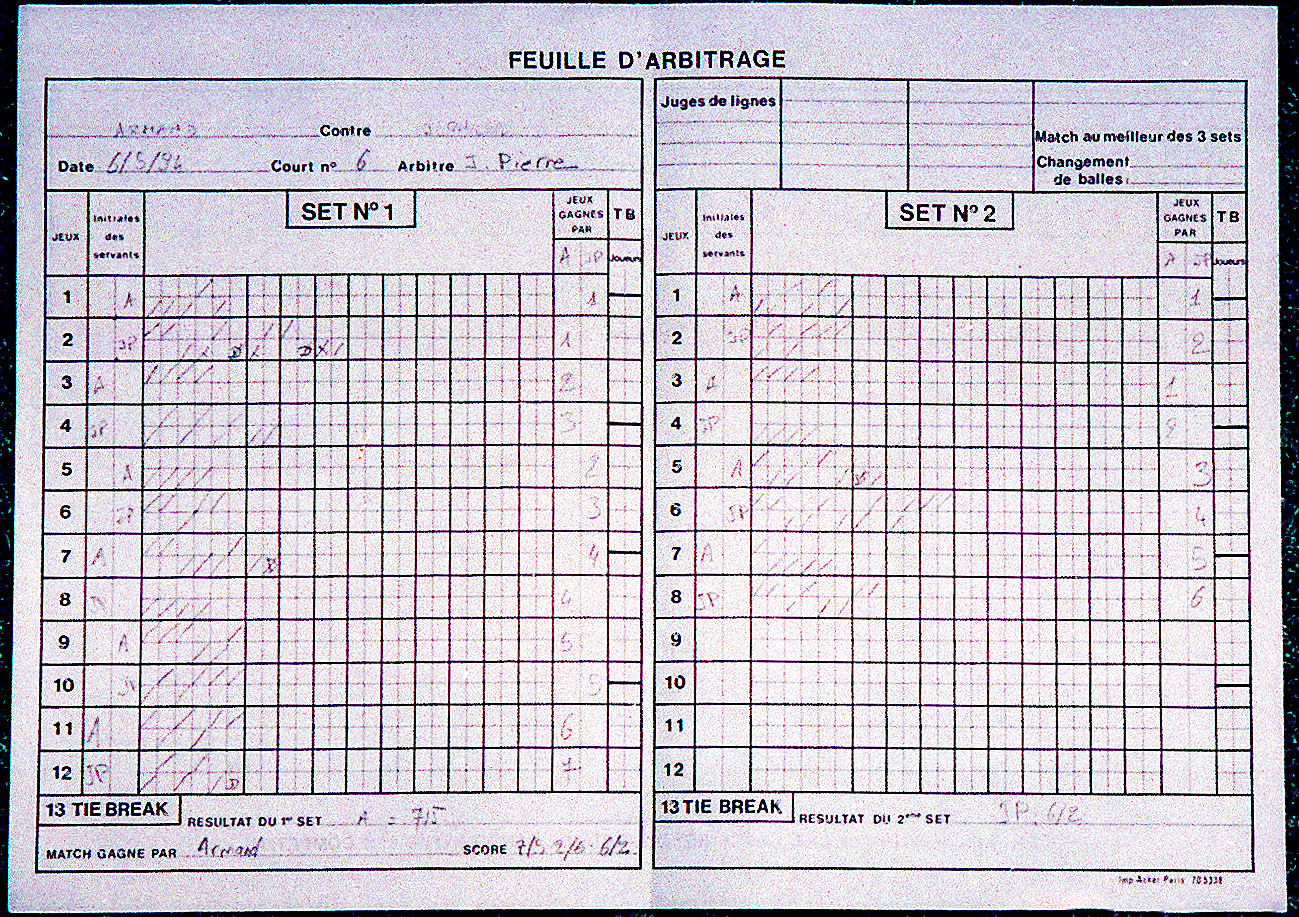 FEUILLE D'ARBITRAGE
ARMAND Contre
Date 6/5/94 Court n° 6 Arbitre J. Pierre
Juges de lignes
Match au meilleur des 3 sets
Changement
de balles:
JEUX Initiales des servants SET N° 1 JEUX GAGNÉS PAR TB
A JP Joueurs
1 A 1
2 JP 1
3 A 2
4 JP 3
5 A 2
6 JP 3
7 A 4
8 4
9 A 5
10 JP 5
11 A 6
12 JP 7
13 TIE BREAK RESULTAT DU 1er SET A = 7/5
MATCH GAGNE PAR Armand SCORE 7/5 2/6 6/2
JEUX Initiales des servants SET N° 2 JEUX GAGNÉS PAR TB
A JP Joueurs
1 A 1
2 JP 2
3 A 1
4 JP 2
5 A 3
6 JP 4
7 A 5
8 JP 6
9
10
11
12
13 TIE BREAK RESULTAT DU 2ème SET JP. 6/2
Imp Acker Paris 705338